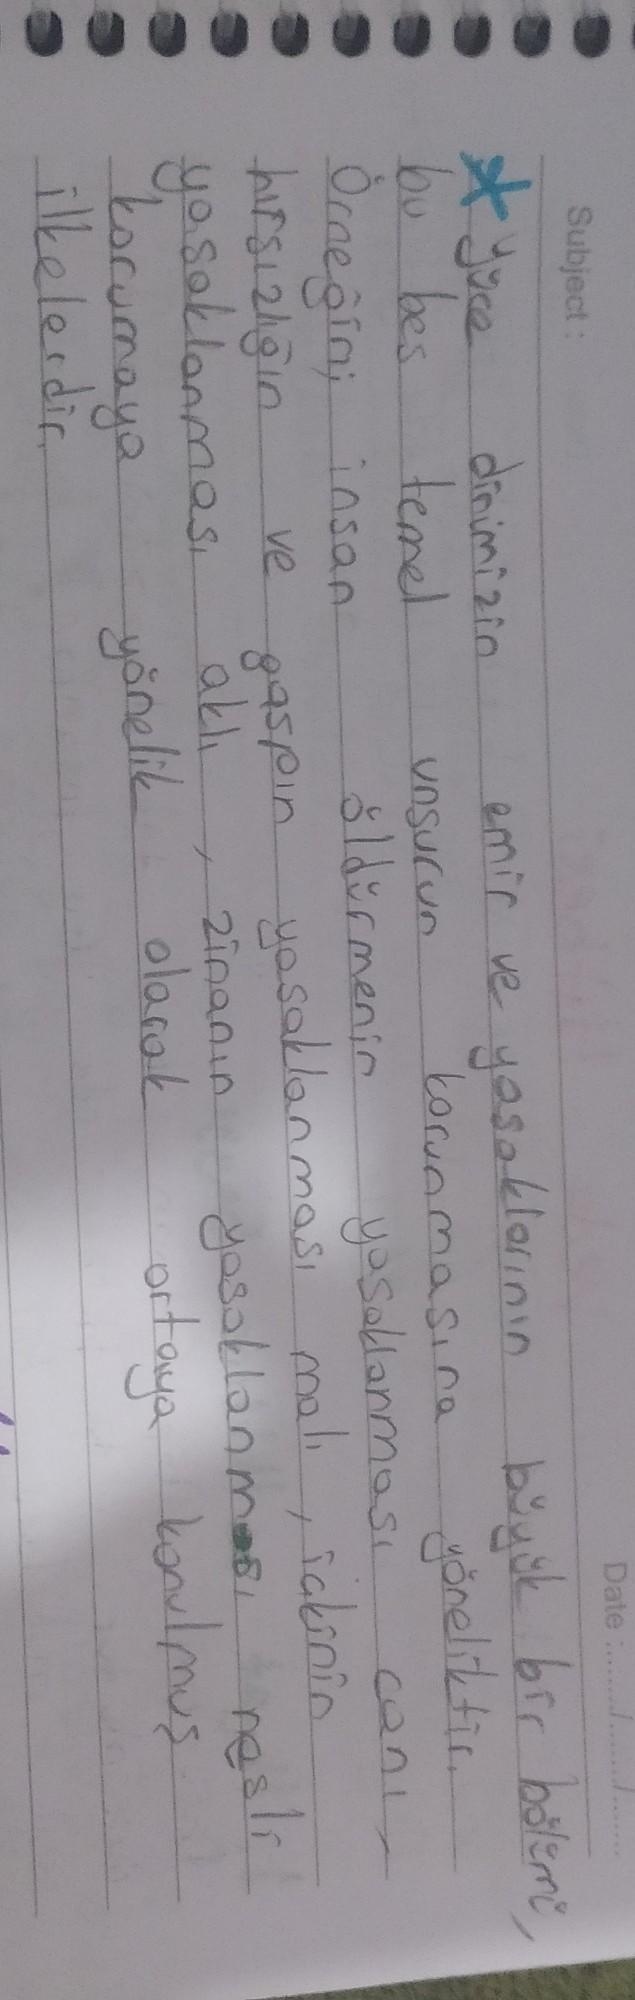 Subject :
Date :......./......./.......
* yüce dinimizin emir ve yasaklarının büyük bir bölümü,
bu bes temel unsurun korunmasına yöneliktir.
Örneğin; insan öldürmenin yasaklanması canı,
hırsızlığın ve gaspın yasaklanması malı, içkinin
yasaklanması aklı, zinanın yasaklanması nesli
korumaya yönelik olarak ortaya konulmuş
ilkelerdir.